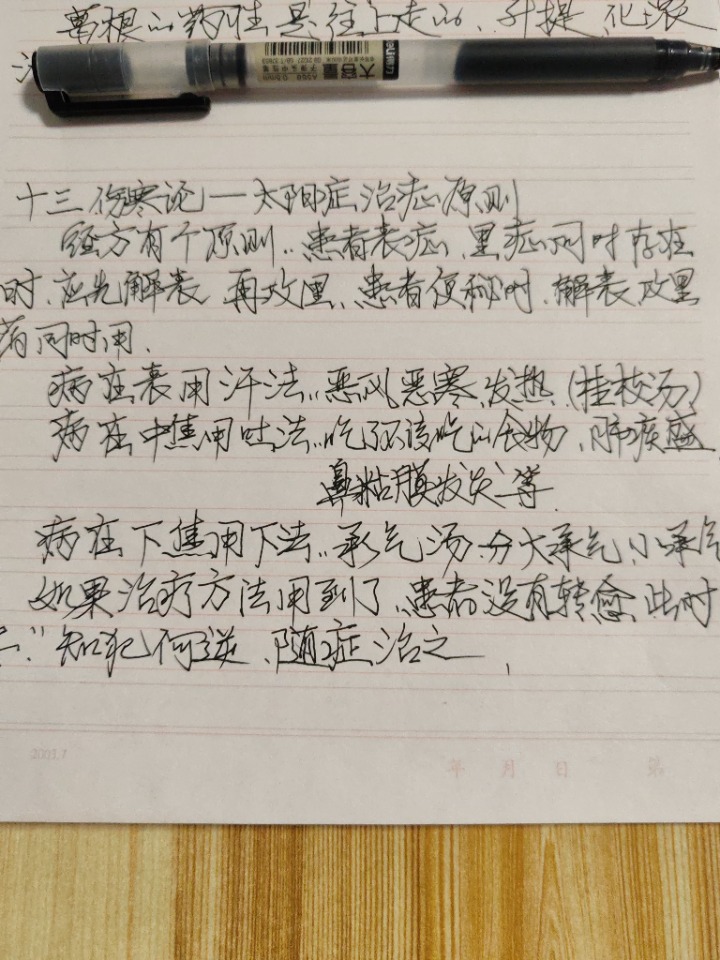 葛根的药性是往上走的、升提、化浓
大容量
子弹头中性笔
十三、伤寒论—太阳症治症原则
经方有个原则：患者表症、里症同时存在
时、应先解表、再攻里、患者便秘时、解表攻里
药同时用.
病在表用汗法：恶风恶寒、发热(桂枝汤)
病在中焦用吐法：吃了不该吃的食物、肺痰盛、
鼻粘膜发炎等.
病在下焦用下法：承气汤.分大承气、小承气
如果治疗方法用到了、患者没有转愈、此时
"知犯何逆、随症治之
2001.7
年 月 日 第